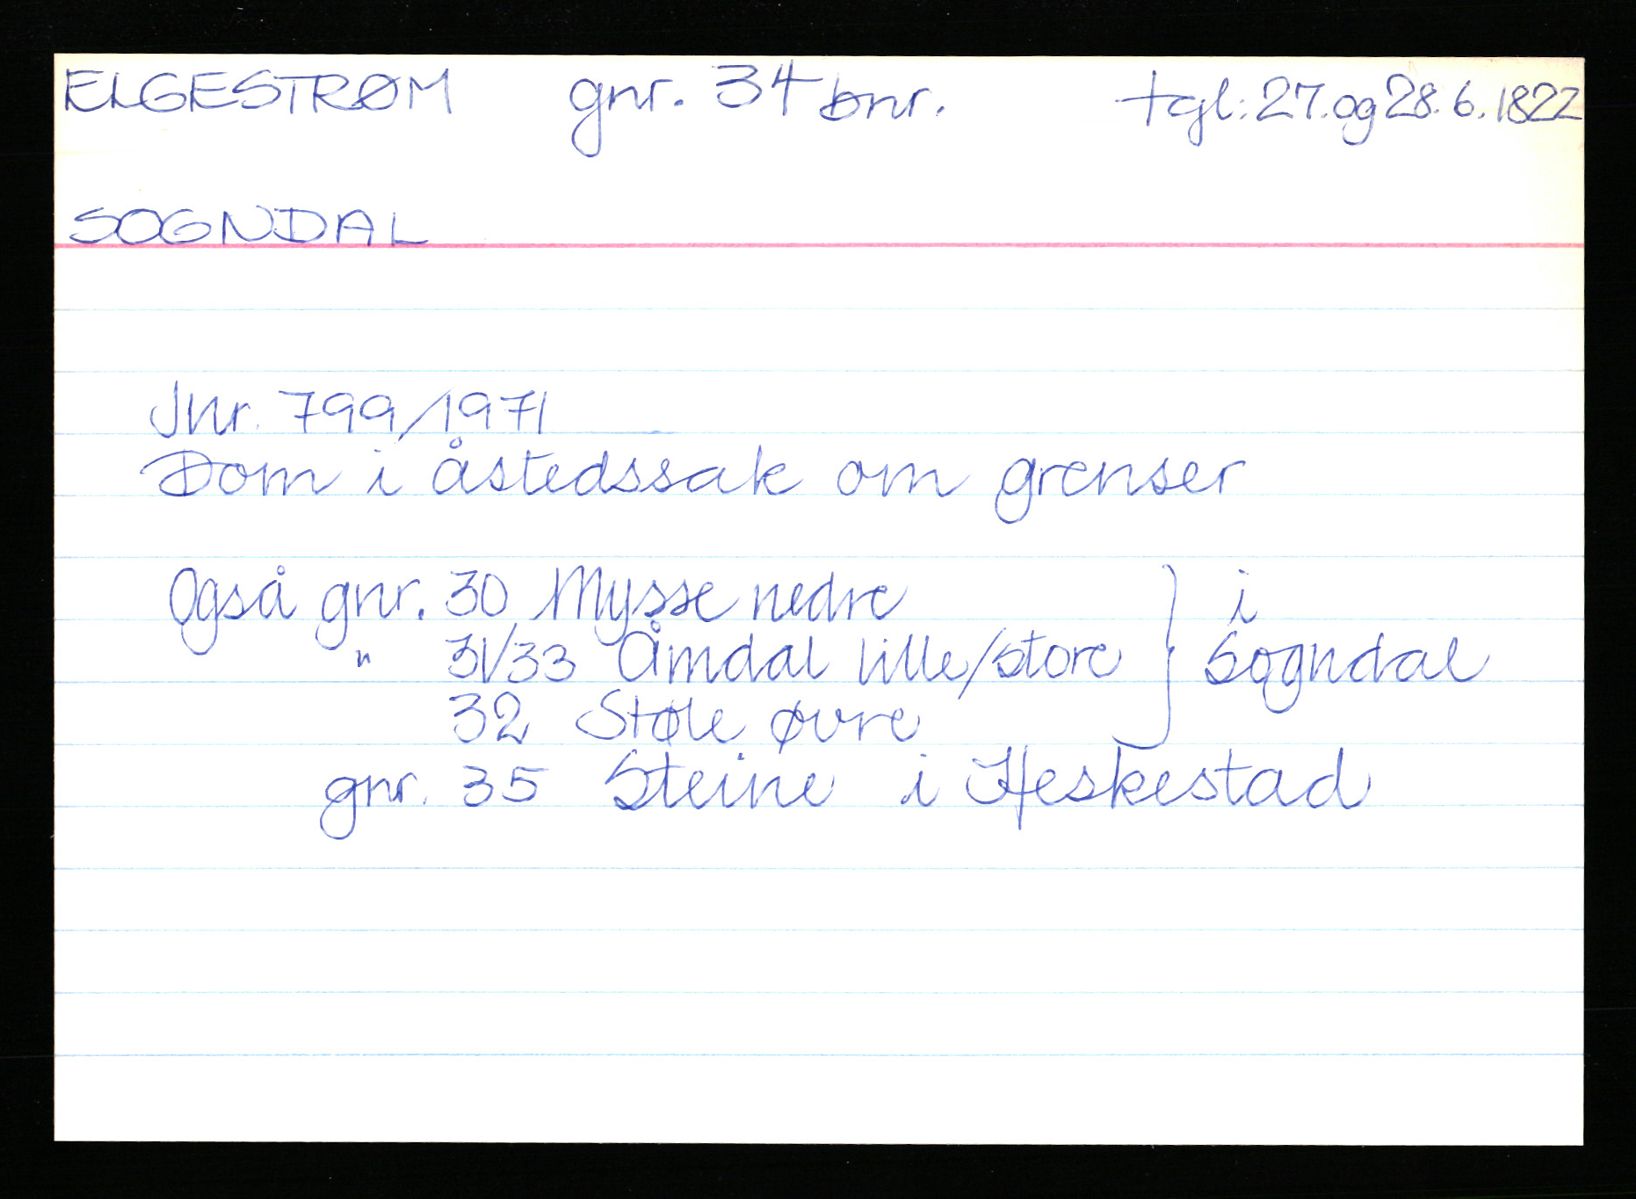 ELGESTRØM gnr. 34 bnr. tgl: 27. og 28. 6. 1822
SOGNDAL
Jnr. 799/1971
Dom i åstedssak om grenser
Også gnr. 30 Mysse nedre } i
" 31/33 Åmdal lille/store } Sogndal
32 Støle øvre
gnr. 35 Steine i Heskestad